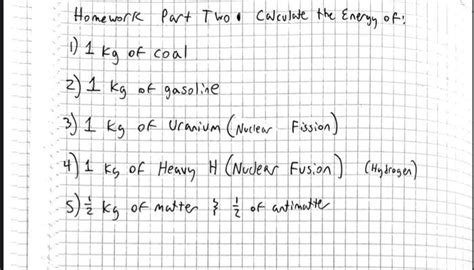 Homework Part Two. Calculate the Energy of:
1) 1 kg of coal
2) 1 kg of gasoline
3) 1 kg of Uranium (Nuclear Fission)
4) 1 kg of Heavy H (Nuclear Fusion) (Hydrogen)
5) 1/2 kg of matter & 1/2 of antimatter